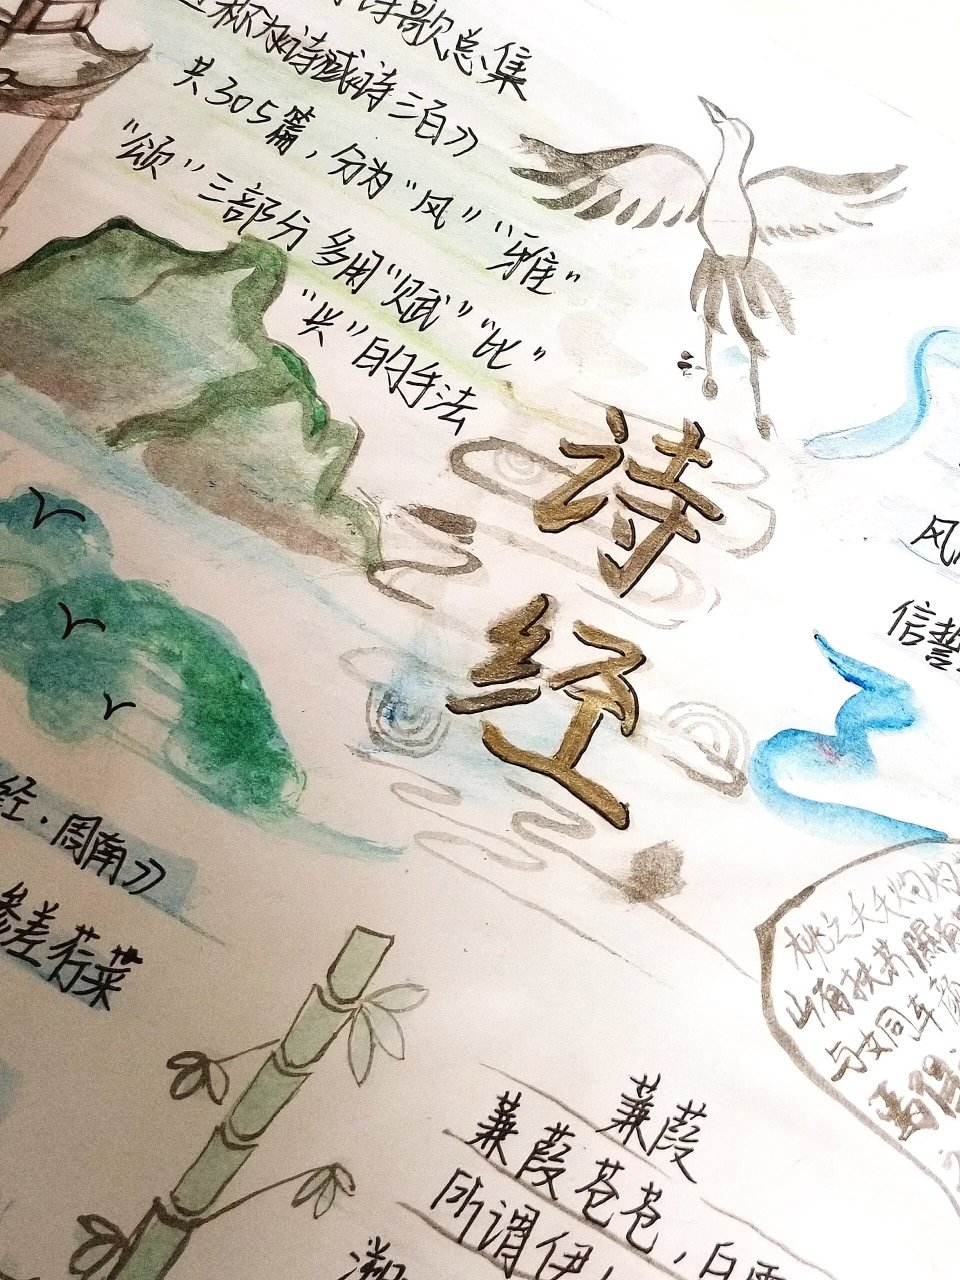 诗歌总集
称为诗或诗三百》
共305篇，分为“风”“雅”
“颂”三部分 多用“赋”“比”
“兴”的手法
诗
经
风
信誓
经·周南》
参差荇菜
桃之夭夭灼灼
山有扶苏隰有
与女同车颜
蒹葭
蒹葭苍苍，白
所谓伊
溯